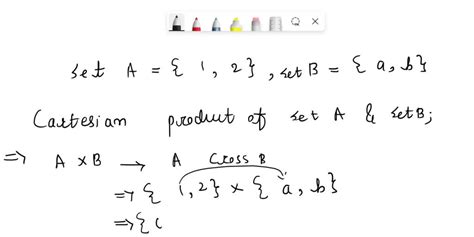 Set A = { 1, 2} , set B = { a, b}
Cartesian product of set A & set B;
⇒ A × B → A Cross B
⇒ { 1, 2} × { a, b}
⇒ { (